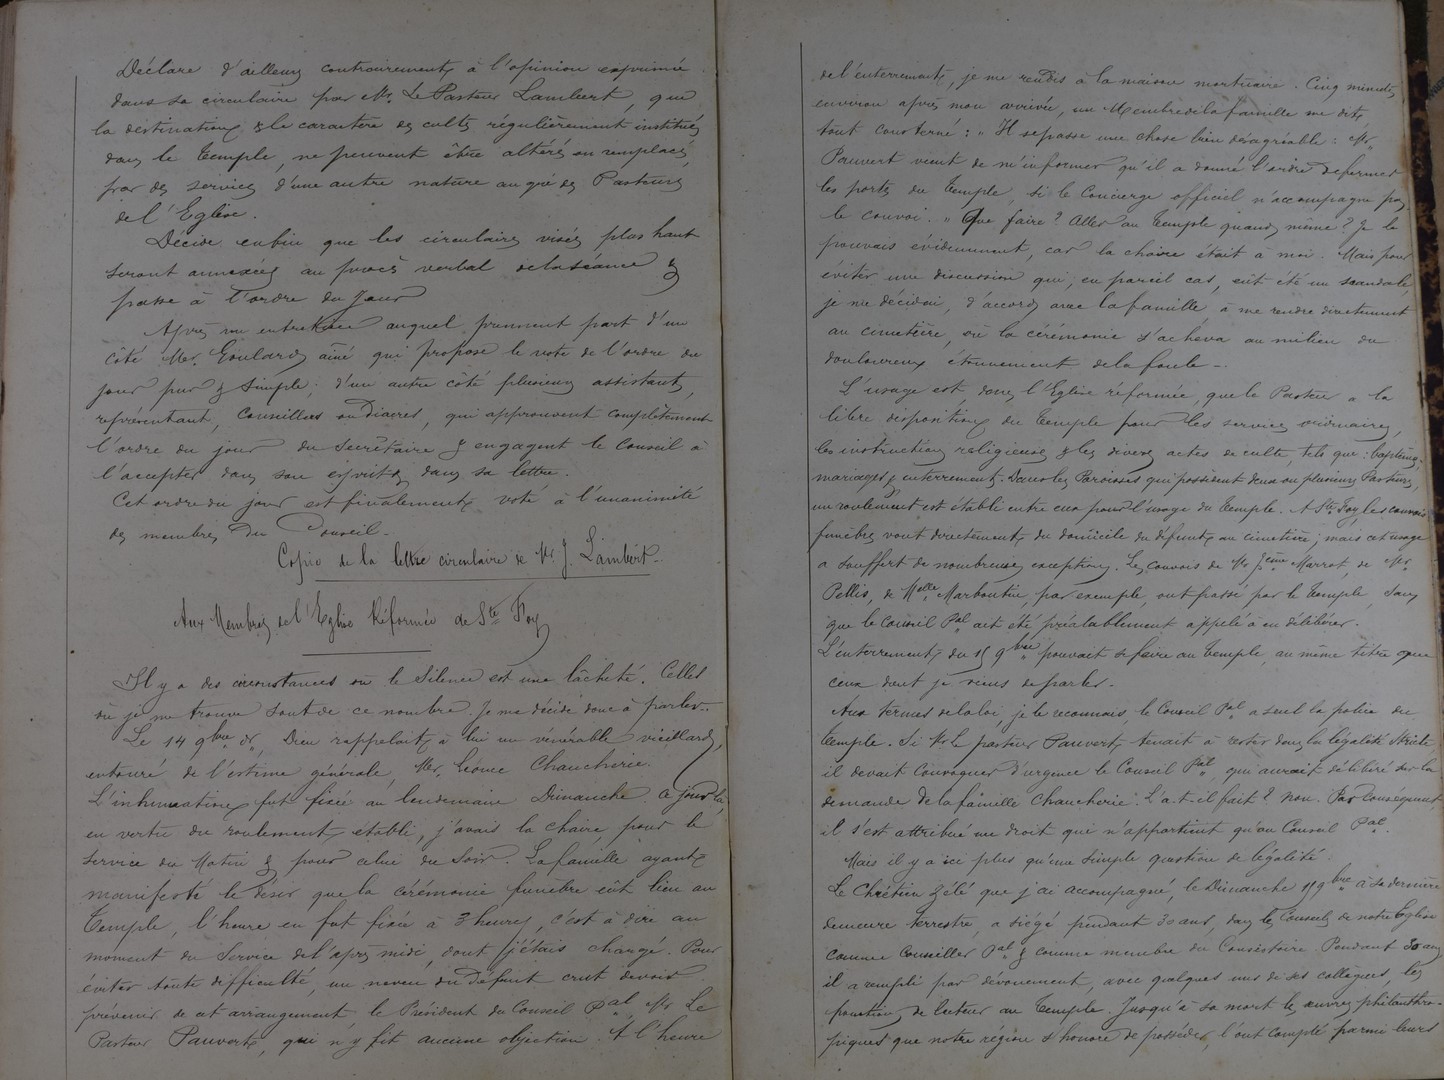 Déclare d'ailleurs contrairement à l'opinion exprimée
dans sa circulaire par Mr. Le Pasteur Lambert, que
la destination & le caractère des cultes régulièrement institués
dans le Temple, ne peuvent être altérés ou remplacés
par des services d'une autre nature au gré des Pasteurs
de l'Eglise.
Décide enfin que les circulaires visées plus haut
seront annexées au procès verbal de la séance &
passe à l'ordre du Jour
Après un entretien auquel prennent part d'un
côté Mr. Goulard aîné qui propose le vote de l'ordre du
jour pur & simple; d'un autre côté plusieurs assistants,
représentant, Conseillers ou Diacres, qui approuvent complètement
l'ordre du jour du Secrétaire & engagent le Conseil à
l'accepter dans son esprit & dans sa lettre.
Cet ordre du jour est finalement voté à l'unanimité
des membres du Conseil.
Copie de la lettre circulaire de Mr. J. Lambert.
Aux Membres de l'Eglise Réformée de Ste Foy
Il y a des circonstances où le Silence est une lâcheté. Celles
où je me trouve sont de ce nombre. Je me décide donc à parler.
Le 14 9bre dr, Dieu rappelait à lui un vénérable vieillard,
entouré de l'estime générale, Mr. Léonce Chaucherie.
L'inhumation fut fixée au lendemain Dimanche. Ce jour-là,
en vertu du roulement établi, j'avais la chaire, pour le
service du Matin & pour celui du Soir. La famille ayant
manifesté le désir que la cérémonie funèbre eût lieu au
Temple, l'heure en fut fixée à 3 heures, c'est à dire au
moment du Service de l'après midi, dont j'étais chargé. Pour
éviter toute difficulté, un neveu du Défunt crut devoir
prévenir de cet arrangement le Président du Conseil Pal, Mr Le
Pasteur Pauvert, qui n'y fit aucune objection. A l'heure
de l'enterrement, je me rendis à la maison mortuaire. Cinq minutes
environ après mon arrivée, un Membre de la famille me dit,
tout consterné: "Il se passe une chose bien désagréable: Mr
Pauvert vient de m'informer qu'il a donné l'ordre de fermer
les portes du Temple, si le Concierge officiel n'accompagne pas
le convoi." Que faire? Aller au Temple quand même? Je le
pouvais évidemment, car la chaire était à moi. Mais pour
éviter une discussion qui, en pareil cas, eût été un scandale,
je me décidai, d'accord avec la famille à me rendre directement
au cimetière, où la cérémonie s'acheva au milieu du
douloureux étonnement de la foule.
L'usage est, dans l'Eglise réformée, que le Pasteur a la
libre disposition du Temple pour les services ordinaires,
les instructions religieuses & les divers actes de culte, tels que: baptêmes,
mariages & enterrements. Dans les Paroisses qui possèdent deux ou plusieurs Pasteurs,
un roulement est établi entre eux pour l'usage du Temple. A Ste Foy, les convois
funèbres vont directement du domicile du défunt au cimetière; mais cet usage
a souffert de nombreuses exceptions. Les convois de Mr Marrot, de Mr
Pellis, de Melle Marboutin, par exemple, ont passé par le Temple, sans
que le Conseil Pal ait été préalablement appelé à en délibérer.
L'enterrement du 15 9bre pouvait se faire au Temple, au même titre que
ceux dont je viens de parler.
Aux termes de la loi, je le reconnais, le Conseil Pal a seul la police du
Temple. Si Mr Le pasteur Pauvert tenait à rester dans la légalité stricte,
il devait convoquer d'urgence le Conseil Pal, qui aurait délibéré sur la
demande de la famille Chaucherie. L'a-t-il fait? Non. Par conséquent,
il s'est attribué un droit qui n'appartient qu'au Conseil Pal.
Mais il y a ici plus qu'une simple question de légalité.
Le Chrétien zélé que j'ai accompagné, le Dimanche 15 9bre à sa dernière
demeure terrestre, a siégé pendant 30 ans, dans les Conseils de notre Eglise
comme Conseiller Pal & comme membre du Consistoire. Pendant 30 ans
il a rempli par dévouement, avec quelques uns de ses collègues, les
fonctions de lecteur au Temple. Jusqu'à sa mort les œuvres philanthro-
piques que notre région s'honore de posséder, l'ont compté parmi leurs